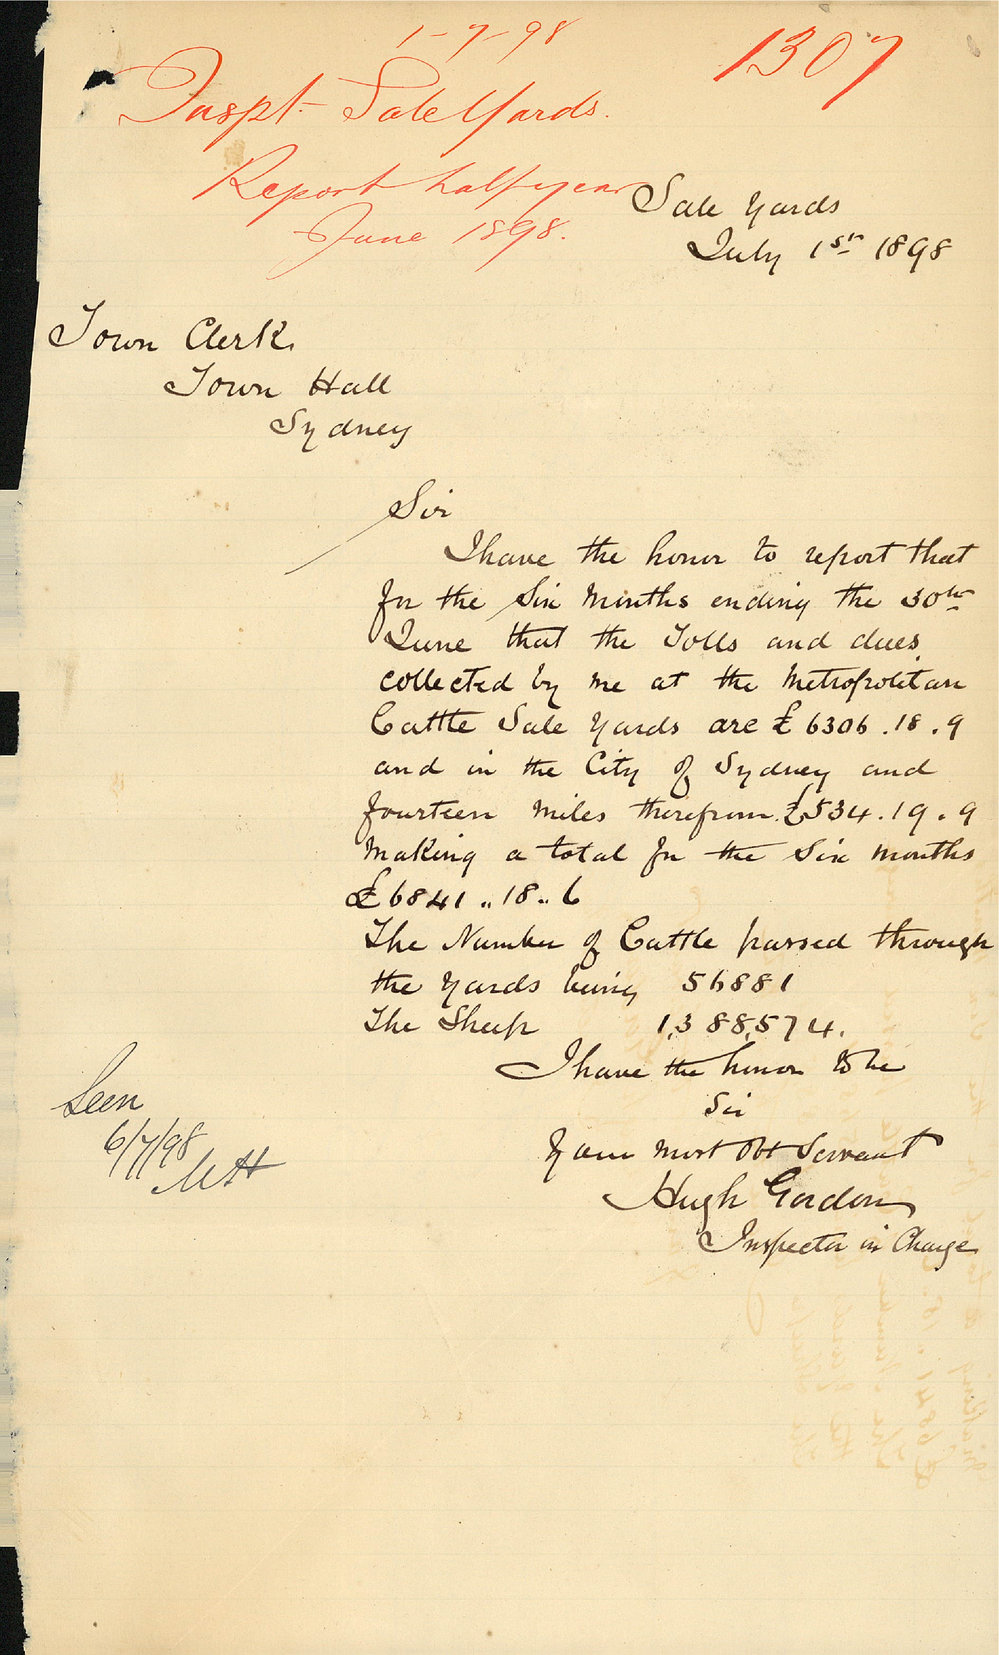 1-7-98
1307
Inspt. Sale Yards.
Report half year
June 1898.
Sale Yards
July 1st 1898
Town Clerk
Town Hall
Sydney
Sir
I have the honor to report that
for the Six Months ending the 30th
June that the Tolls and dues
collected by me at the Metropolitan
Cattle Sale Yards are £6306.18.9
and in the City of Sydney and
fourteen miles therefrom £534.19.9
Making a total for the Six months
£6841..18..6
The Number of Cattle passed through
the Yards being 56881
The Sheep 1,388,574.
I have the honor to be
Sir
Your most Obt Servant
Hugh Gordon
Inspector in Charge
Seen
6/7/98